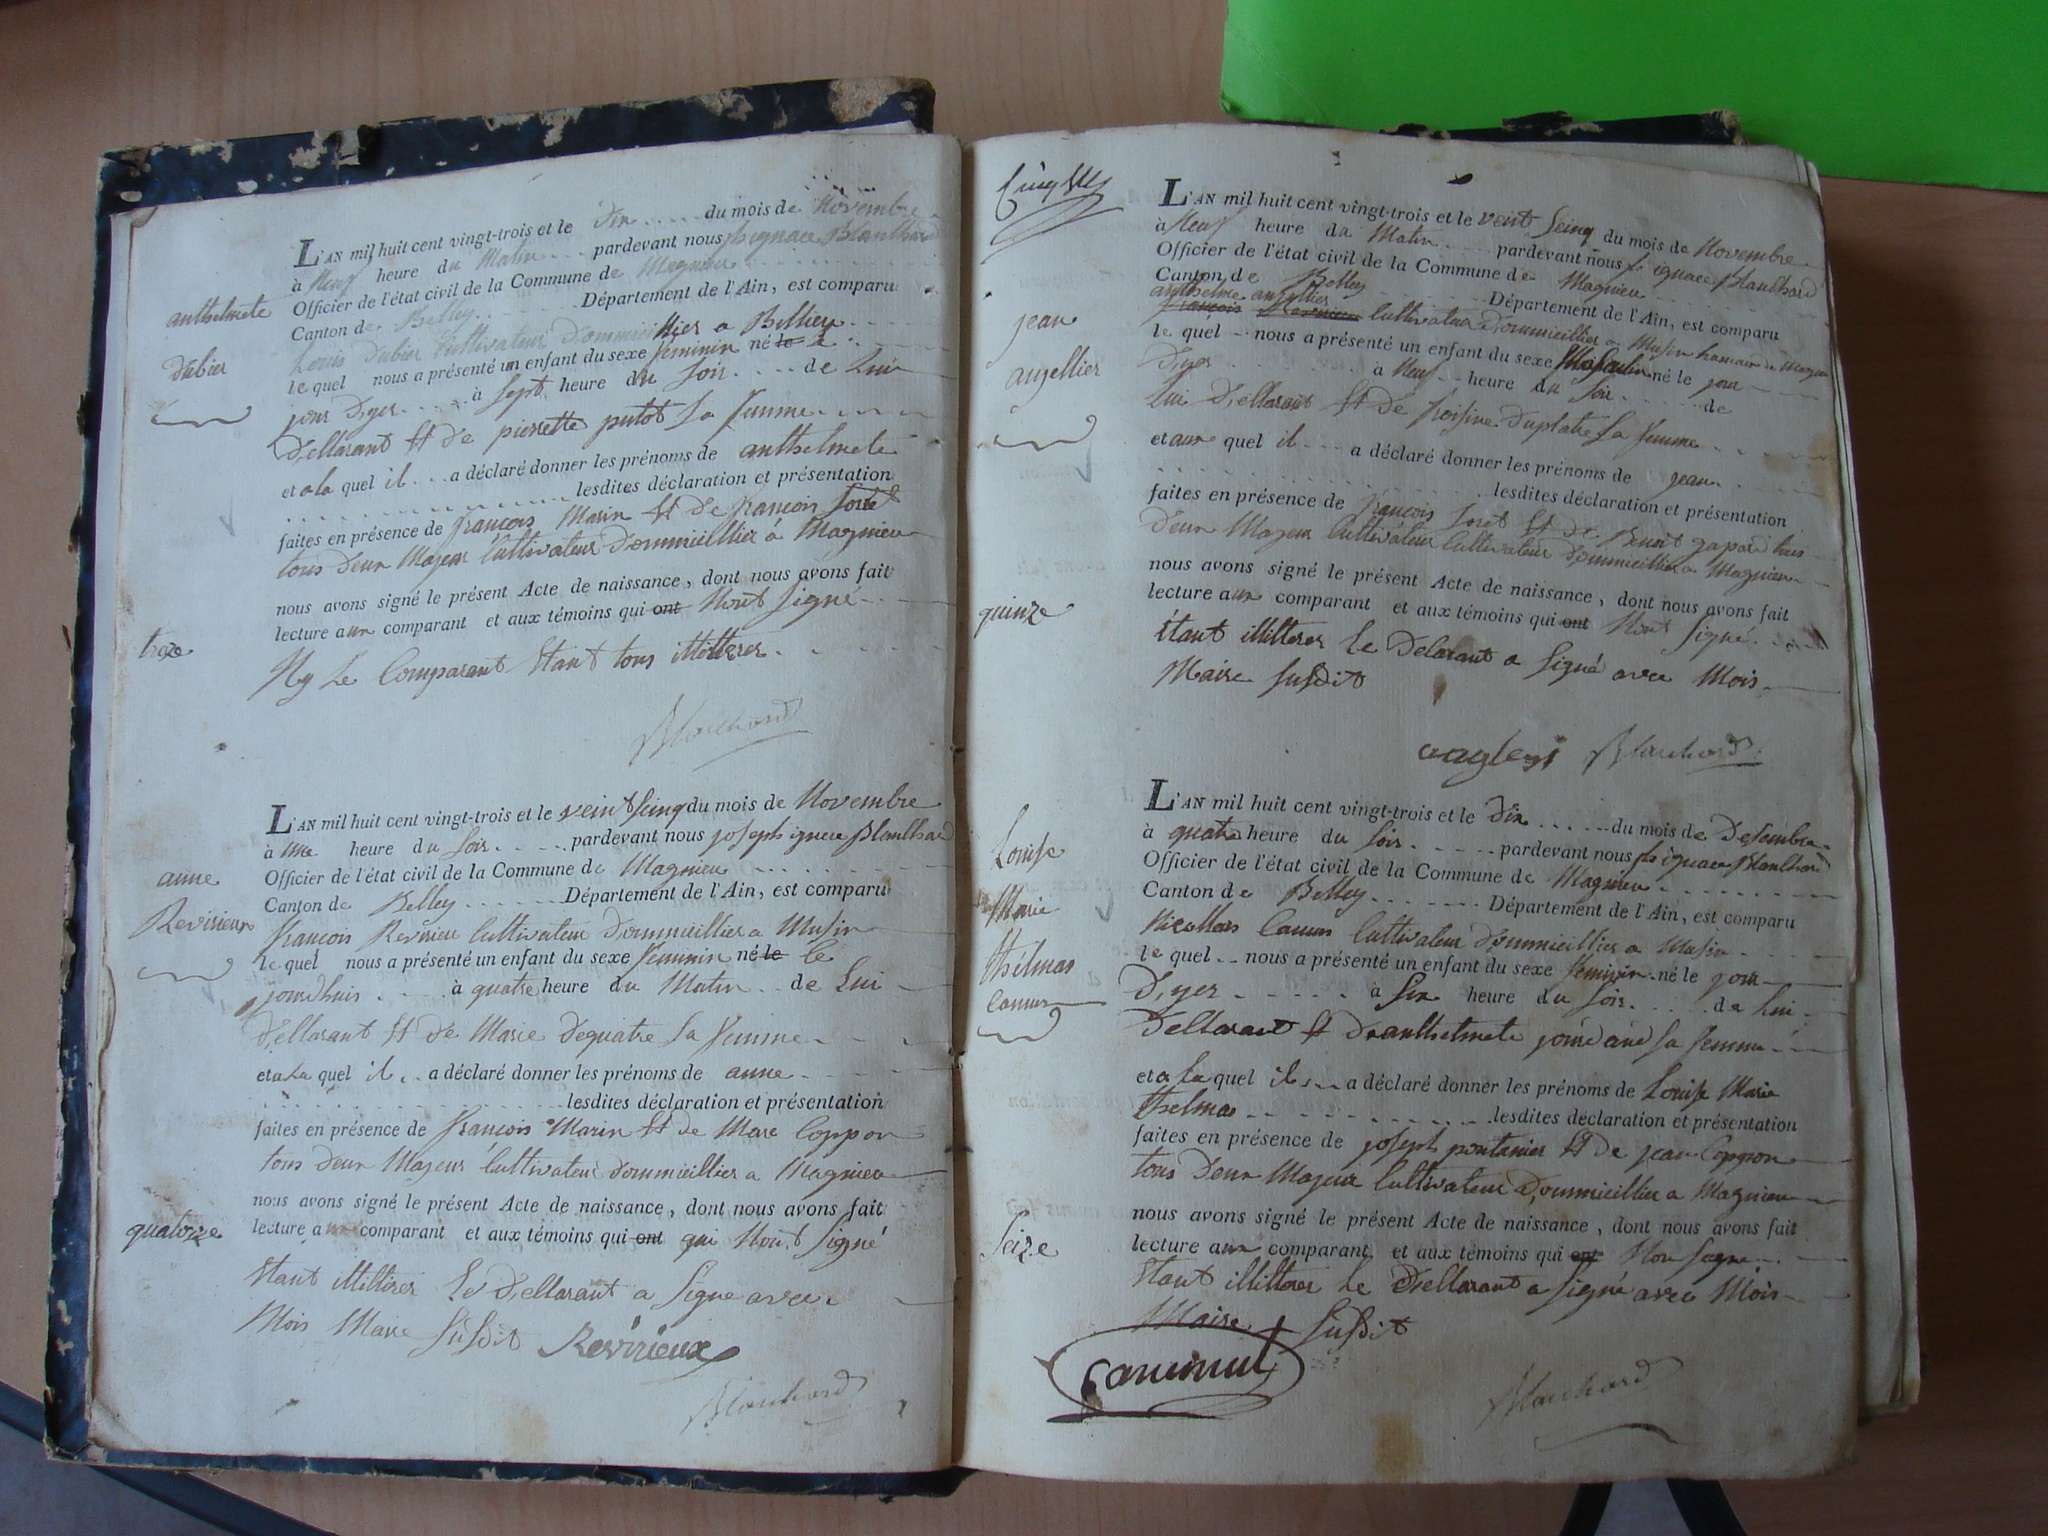 anthelmete
dubier
L'AN mil huit cent vingt-trois et le Dix du mois de Novembre
à Neuf heure du Matin pardevant nous ph ignace Blanchard
Officier de l'état civil de la Commune de Magnieu
Canton de Belley Département de l'Ain, est comparu
Louis Dubier Cultivateur Dommicillier a Billieu
le quel nous a présenté un enfant du sexe feminin né le
jour Dyer à Sept heure du Soir de Lui
Dellarant Et de pierrette putot Sa femme
et a la quel il a déclaré donner les prénoms de anthelmete
lesdites déclaration et présentation
faites en présence de françois Marin Et de francois Joret
tous Deux Majeur Cultivateur Dommicillier à Magnieu
nous avons signé le présent Acte de naissance, dont nous avons fait
lecture aux comparant et aux témoins qui ont Nont Signé
treze
Ny Le Comparant Etant tous illitterer
Blanchard
anne
Revirieux
L'AN mil huit cent vingt-trois et le veint Seinq du mois de Novembre
à une heure du Soir pardevant nous joseph ignace Blanchard
Officier de l'état civil de la Commune de Magnieu
Canton de Belley Département de l'Ain, est comparu
françois Revirieu Cultivateur Dommicillier a Musin
le quel nous a présenté un enfant du sexe feminin né le le
jourdhuis à quatre heure du Matin de Lui
Dellarant Et de Marie dequatre Sa femme
et a La quel il a déclaré donner les prénoms de anne
lesdites déclaration et présentation
faites en présence de françois Marin Et de Marc Coppon
tous Deux Majeur Cultivateur Dommicillier a Magnieu
nous avons signé le présent Acte de naissance, dont nous avons fait
lecture aux comparant et aux témoins qui ont qui Nont Signé
quatorze
Etant illitterer Le Dellarant a Signe avec
Mois Maire Susdit Revirieux
Blanchard
jean
angellier
L'AN mil huit cent vingt-trois et le veint Seinq du mois de Novembre
à Neuf heure du Matin pardevant nous ph ignace Blanchard
Officier de l'état civil de la Commune de Magnieu
Canton de Belley Département de l'Ain, est comparu
anthelme angellier
françois Revirieu Cultivateur Dommicillier a Musin hamau de Magnieu
le quel nous a présenté un enfant du sexe Masculin né le jour
Dyer à Neuf heure du Soir de
Lui Dellarant Et de froisine Duplatre Sa femme
et aux quel il a déclaré donner les prénoms de jean
lesdites déclaration et présentation
faites en présence de françois Joret Et de Benoit gapard tous
Deux Majeur Cultivateur Cultivateur Dommicillier a Magnieu
nous avons signé le présent Acte de naissance, dont nous avons fait
lecture aux comparant et aux témoins qui ont Nont Signé
quinze
Etant illitterer Le Delarant a Signé avec Mois
Maire Susdit
Blanchard
Louise
Marie
thélmas
Camus
L'AN mil huit cent vingt-trois et le Dix du mois de Desembre
à quatre heure du Soir pardevant nous ph ignace Blanchard
Officier de l'état civil de la Commune de Magnieu
Canton de Belley Département de l'Ain, est comparu
Nicollas Camus Cultivateur Dommicillier a Musin
le quel nous a présenté un enfant du sexe feminin né le jour
Dyer à Six heure du Soir de Lui
Dellarant Et Danthelmete Sa femme
et a La quel il a déclaré donner les prénoms de Louise Marie
thelmas lesdites déclaration et présentation
faites en présence de joseph pontanier Et de jean Coppon
tous Deux Majeur Cultivateur Dommicillier a Magnieu
nous avons signé le présent Acte de naissance, dont nous avons fait
lecture aux comparant et aux témoins qui ont Non Signe
Seize
Etant illitterer Le Dellarant a Signé avec Mois
Maire Susdit
Blanchard